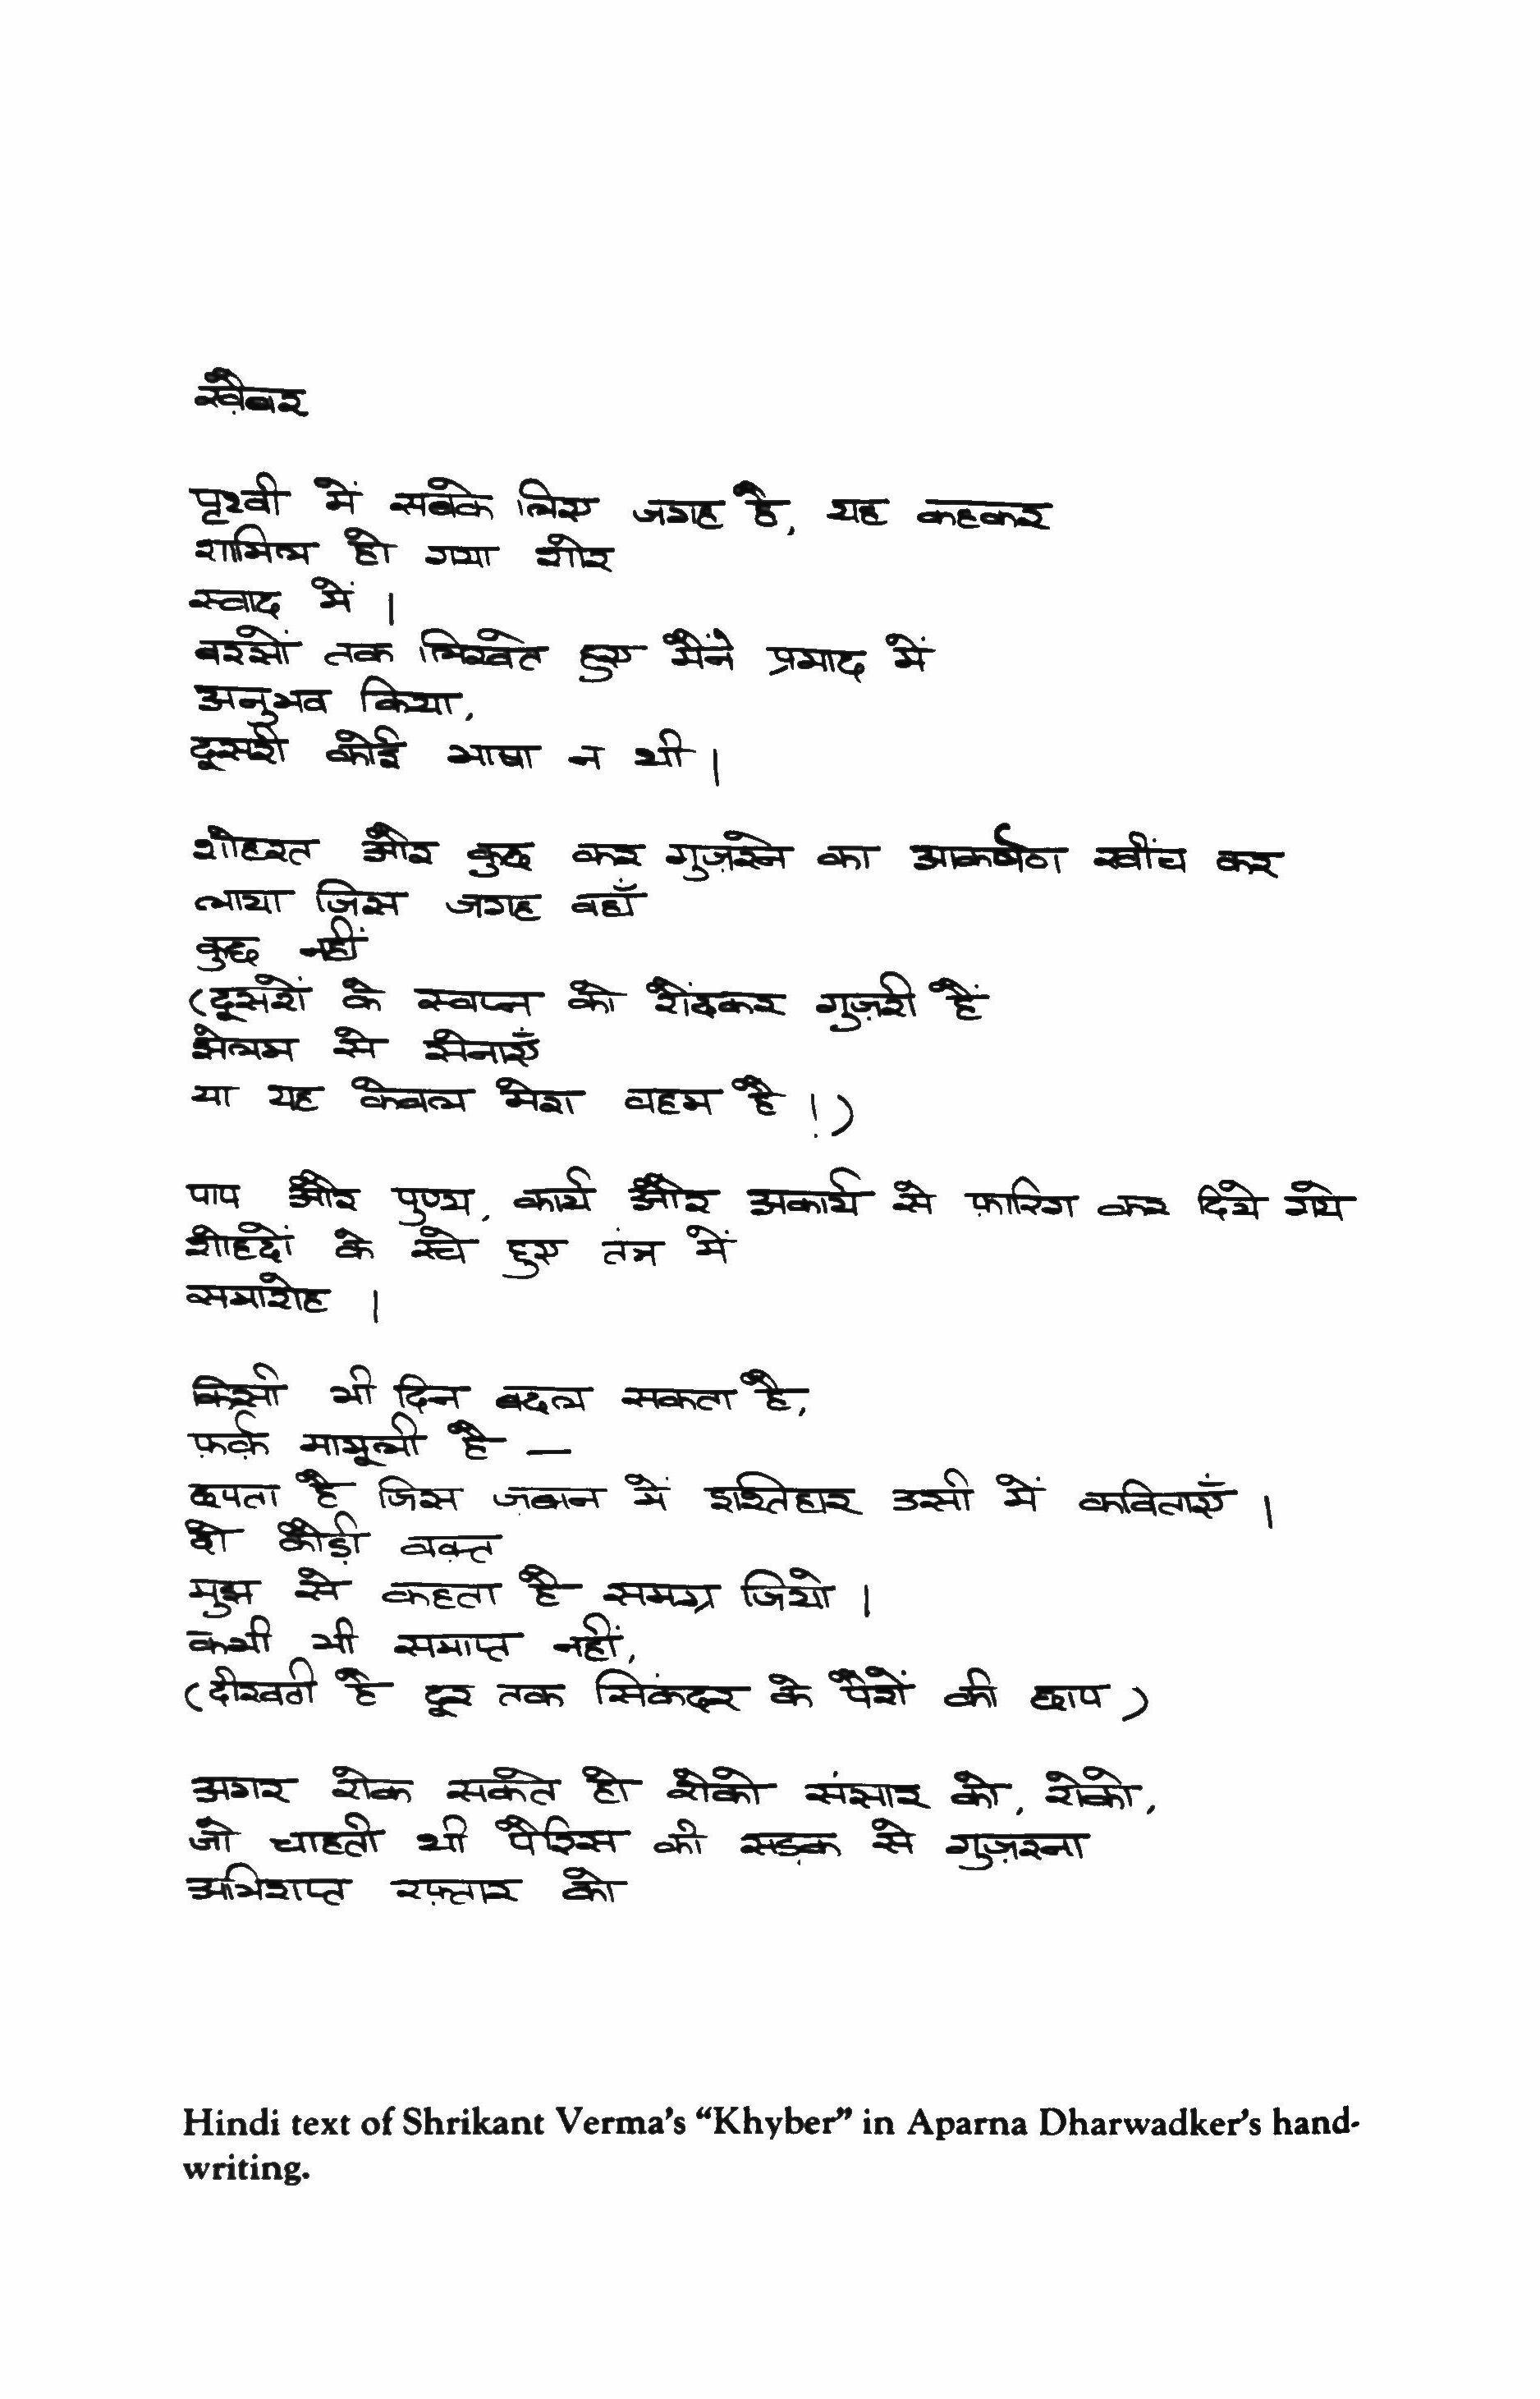 ख़ैबर
पृथ्वी में सबके लिए जगह है, यह कहकर
शामिल हो गया शोर
स्वाद में ।
बरसों तक लिखते हुए मैंने प्रमाद में
अनुभव किया,
दूसरी कोई भाषा न थी ।
शोहरत और कुछ कर गुज़रने का आकर्षण खींच कर
लाया जिस जगह वहाँ
कुछ नहीं
(दूसरों के स्वप्न को रौंदकर गुज़री हैं
झेलम से सेनाएँ
या यह केवल मेरा वहम है !)
पाप और पुण्य, कार्य और अकार्य से फ़ारिग कर दिये गये
शोहदों के रचे हुए तंत्र में
समारोह ।
किसी भी दिन बदल सकता है,
फ़र्क़ मामूली है —
छपता है जिस ज़बान में इश्तिहार उसी में कविताएँ ।
दो कौड़ी वक़्त
मुझ से कहता है समग्र जियो ।
कभी भी समाप्त नहीं,
(दीखती है दूर तक सिकंदर के पैरों की छाप)
अगर रोक सकते हो रोको संसार को, रोको,
जो चाहती थी पैरिस की सड़क से गुज़रना
अभिशप्त रफ़्तार को
Hindi text of Shrikant Verma's “Khyber” in Aparna Dharwadker's hand-
writing.